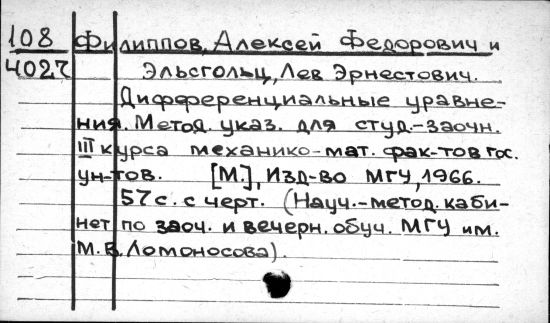 108 Филиппов, Алексей Федорович и
4027 Эльсгольц, Лев Эрнестович.
Дифференциальные уравне-
ния. Метод. указ. для студ-заочн.
III курса механико-мат. фак-тов гос.
ун-тов. [М.], Изд-во МГУ, 1966.
57 с. с черт. (Науч.-метод. каби-
нет по заоч. и вечерн. обуч. МГУ им.
М.В. Ломоносова).